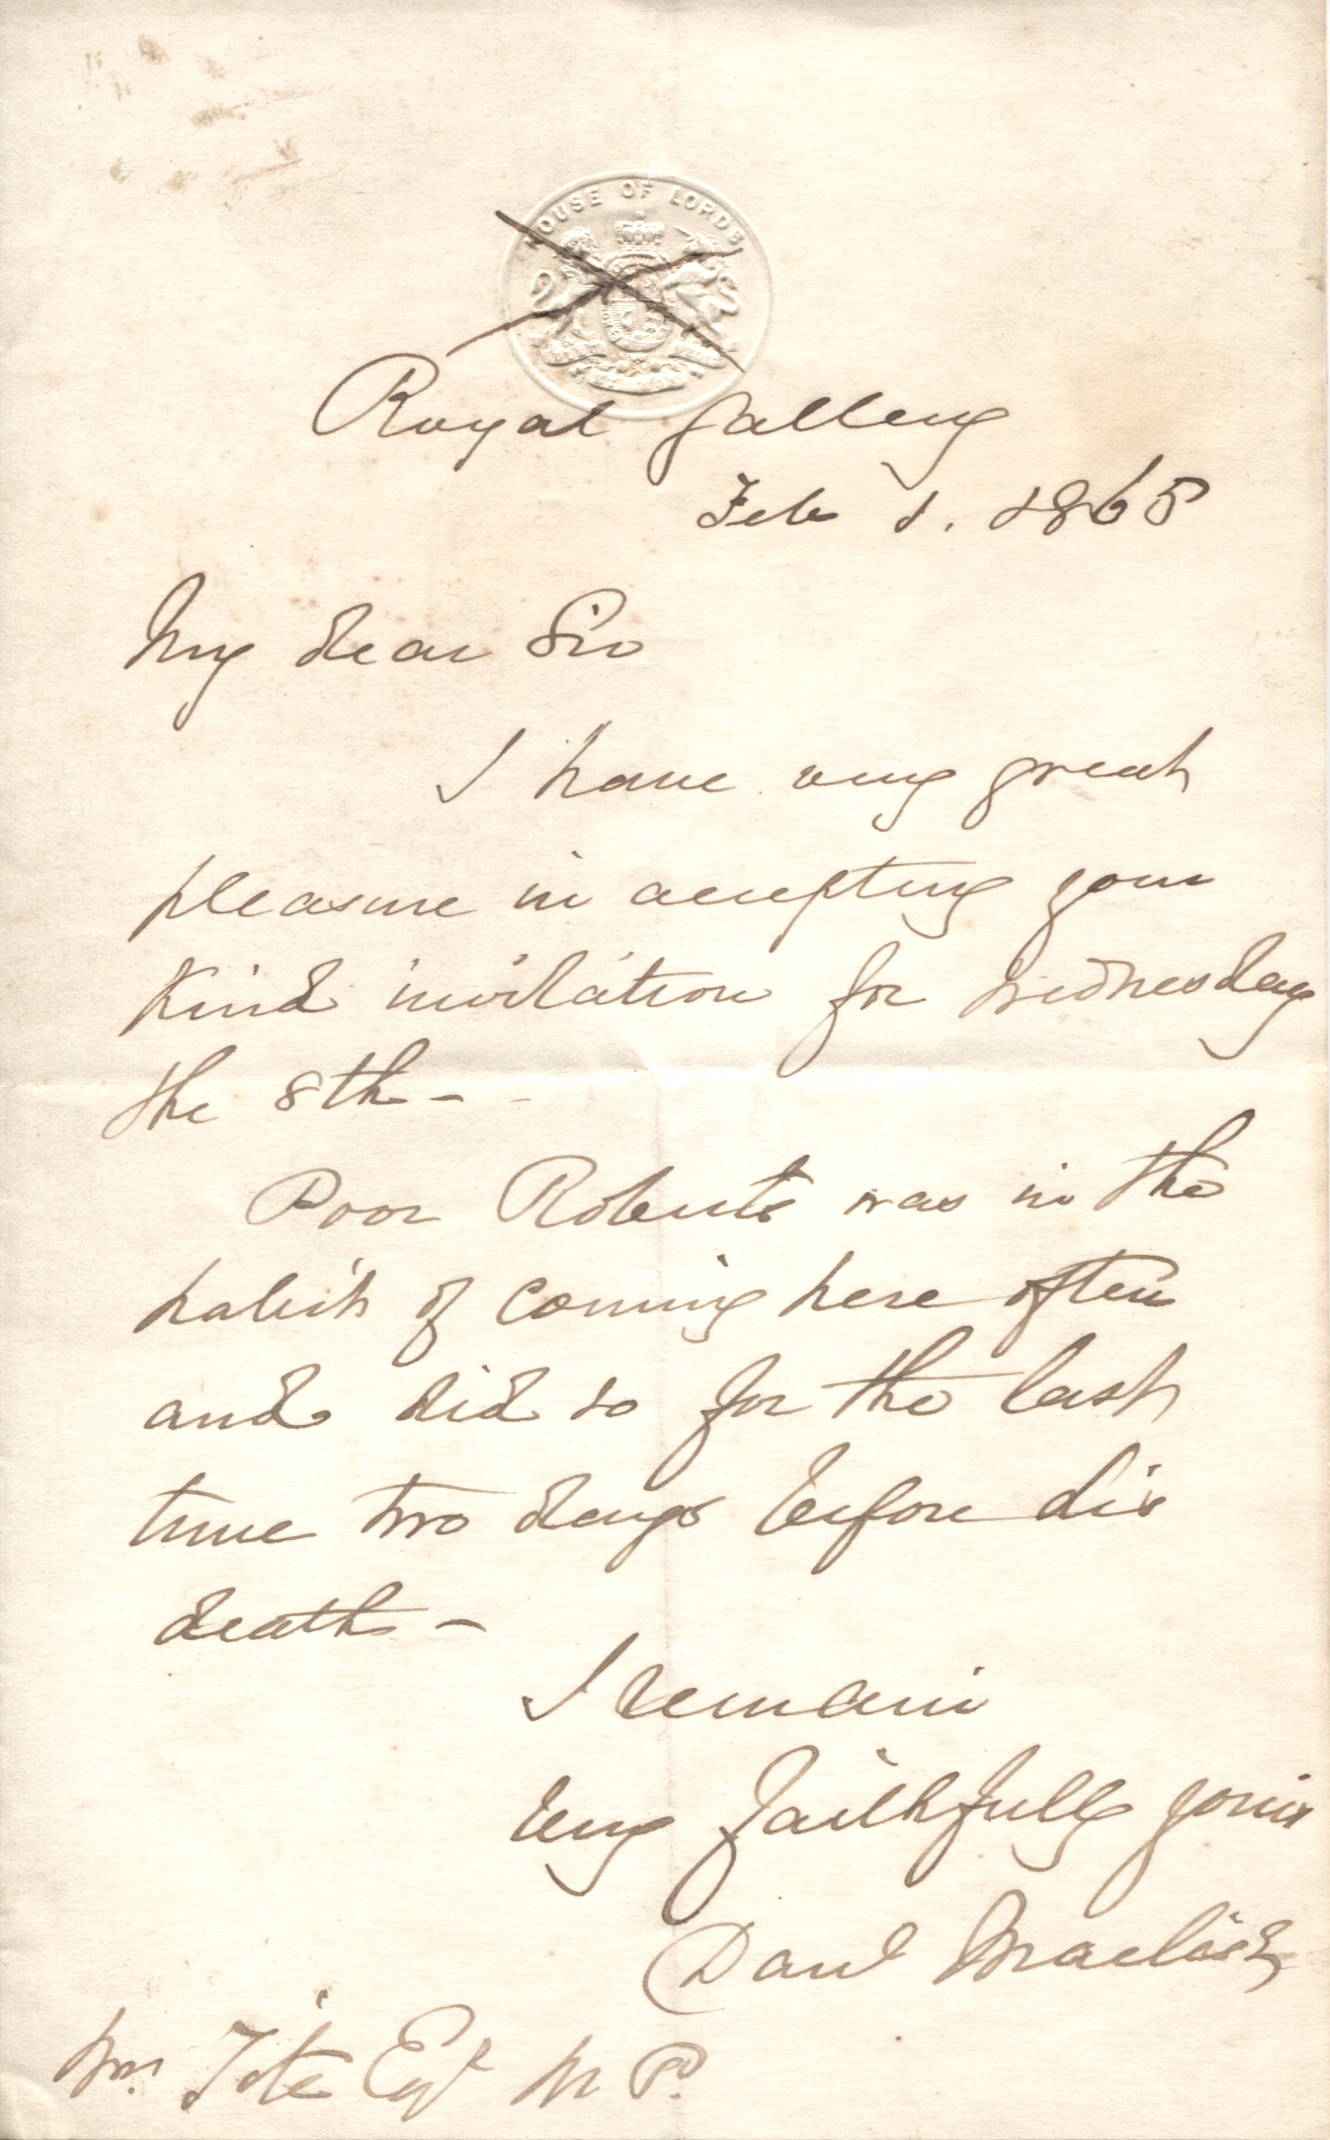 HOUSE OF LORDS
Royal Gallery
Feb 1. 1865
My dear Sir
I have very great
pleasure in accepting your
Kind invitation for Wednesday
the 8th -
Poor Roberts was in the
habit of coming here often
and did so for the last
time two days before his
death -
I remain
Very faithfully yours
Danl Maclise
Wm. Tite Esqr M P.